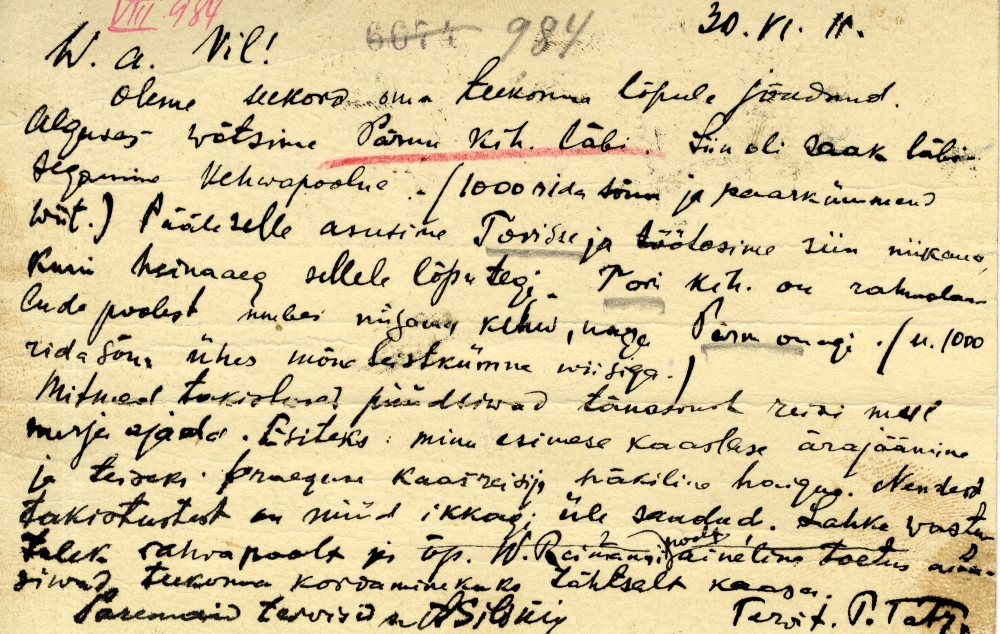 VIII 984
6074 984 30. VI. 11.
W. a. Vil!
Oleme seekord oma teekonna lõpule jõudnud.
Alguses wõtsime Pärnu kih. läbi. Siin oli saak läbi-
segamine kehwapoolne. (1000 rida sõnu ja paarkümmend
wiit.) Pääle selle asusime Torisse ja töötasime siin niikaua,
kuni heinaaeg sellele lõpu tegi. Tori kih. on rahwalau-
lude poolest umbes niisama kehw, nagu Pärnu omagi. (u. 1000
rida sõnu ühes mõneteistkümne wiisiga.)
Mitmed takistused püüdsiwad tänawust reisi meil
nurja ajada. Esiteks: minu esimese kaaslase ärajäämine
ja teiseks praeguse kaasreisija äkiline haigus. Nendest
takistustest on nüüd ikkagi üle saadud. Lahke wastu-
tulek rahwa poolt ja õp. W. Reimani poolt aineline toetus
siwad teekonna kordaminekuks tähtsalt kaasa.
Paremaid terwisid A Sildnig Terwit. P. Tatz.